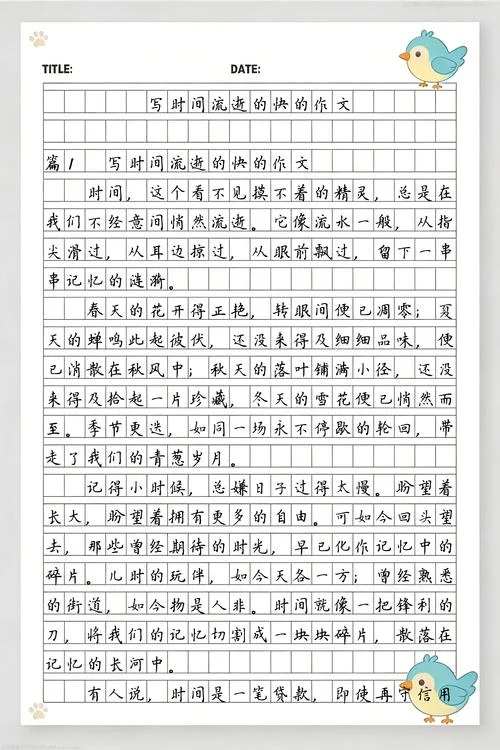 TITLE: DATE:
写时间流逝的快的作文
篇1 写时间流逝的快的作文
时间，这个看不见摸不着的精灵，总是在
我们不经意间悄然流逝。它像流水一般，从指
尖滑过，从耳边掠过，从眼前飘过，留下一串
串记忆的涟漪。
春天的花开得正艳，转眼间便已凋零；夏
天的蝉鸣此起彼伏，还没来得及细细品味，便
已消散在秋风中；秋天的落叶铺满小径，还没
来得及拾起一片珍藏，冬天的雪花便已悄然而
至。季节更迭，如同一场永不停歇的轮回，带
走了我们的青葱岁月。
记得小时候，总嫌日子过得太慢。盼望着
长大，盼望着拥有更多的自由。可如今回头望
去，那些曾经期待的时光，早已化作记忆中的
碎片。儿时的玩伴，如今天各一方；曾经熟悉
的街道，如今物是人非。时间就像一把锋利的
刀，将我们的记忆切割成一块块碎片，散落在
记忆的长河中。
有人说，时间是一笔贷款，即使再守信用